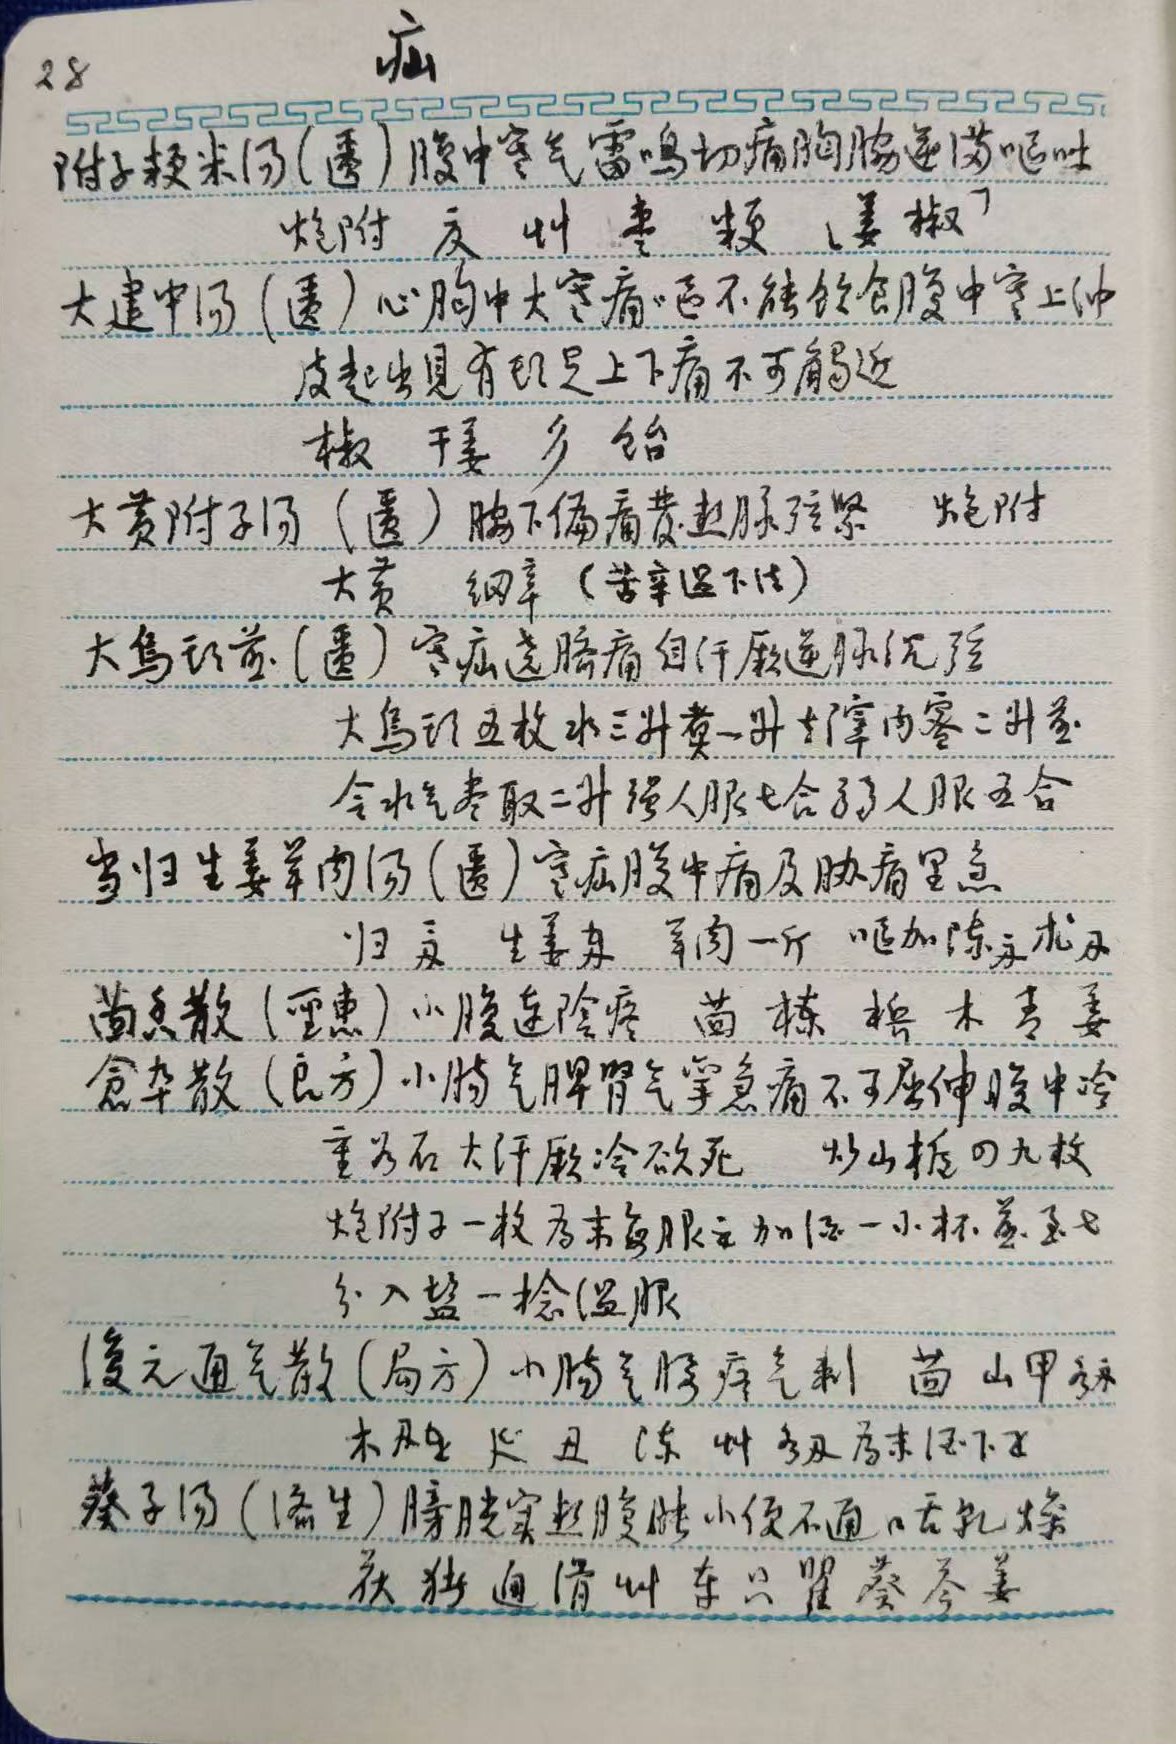 28 疝
附子粳米汤(匮)腹中寒气雷鸣切痛胸胁逆满呕吐
炮附 夏 艸 枣 粳 姜 椒
大建中汤(匮)心胸中大寒痛呕不能饮食腹中寒上冲
皮起出见有头足上下痛不可触近
椒 干姜 参 饴
大黄附子汤(匮)胁下偏痛发热脉弦紧 炮附
大黄 细辛(苦辛温下法)
大乌头煎(匮)寒疝绕脐痛自汗厥逆脉沉弦
大乌头五枚水三升煮一升去滓内蜜二升煎
令水气尽取二升强人服七合弱人服五合
当归生姜羊肉汤(匮)寒疝腹中痛及胁痛里急
归 生姜 羊肉一斤 呕加陈 术
茴香散(圣惠)小腹连阴疼 茴 楝 槟 木 青 姜
仓卒散(良方)小肠气脾肾气挛急痛不可屈伸腹中冷
重如石大汗厥冷欲死 炒山栀四九枚
炮附子一枚为末每服 加酒一小杯煎至七
分入盐一捻温服
復元通气散(局方)小肠气腰疼气刺 茴 山甲
木 延 丑 陈 艸 为末酒下
葵子汤(济生)膀胱实热腹胀小便不通口舌乾燥
茯 猪 通 滑 艸 车 只 瞿 葵 芩 姜